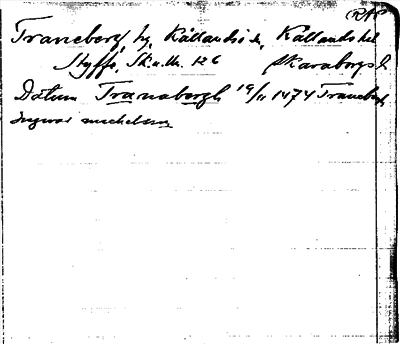 (RAP
Traneberg, by, Kållandsö sn, Kållands hd
Styffe, Sk. u. Un. 126 Skaraborgs l
Datum Tranabergh 19/11 1474 Traneberg
Ingwar michelsson